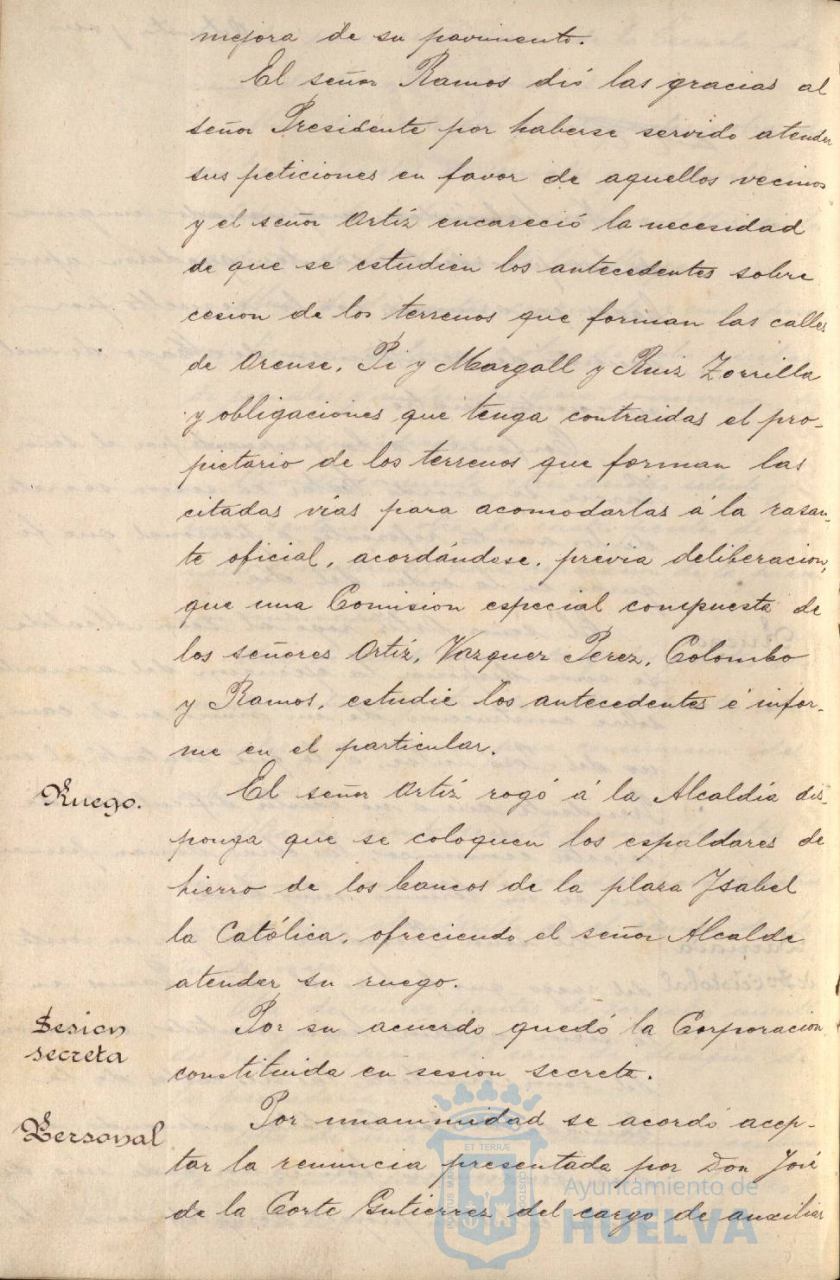 mejora de su pavimento.
El señor Ramos dió las gracias al
señor Presidente por haberse servido atender
sus peticiones en favor de aquellos vecinos
y el señor Ortiz encareció la necesidad
de que se estudien los antecedentes sobre
cesion de los terrenos que forman las calles
de Orense, Pi y Margall y Ruiz Zorrilla
y obligaciones que tenga contraidas el pro-
pietario de los terrenos que forman las
citadas vías para acomodarlas á la rasan-
te oficial, acordándose, prévia deliberacion,
que una Comision especial compuesta de
los señores Ortiz, Vazquez Perez, Colombo
y Ramos, estudie los antecedentes é infor-
me en el particular.
Ruego.
El señor Ortiz rogó á la Alcaldía dis-
ponga que se coloquen los espaldares de
hierro de los bancos de la plaza Ysabel
la Católica, ofreciendo el señor Alcalde
atender su ruego.
Sesion
secreta
Por su acuerdo quedó la Corporacion
constituida en sesion secreta.
Personal
Por unanimidad se acordó acep-
tar la renuncia presentada por Don José
de la Corte Gutierrez del cargo de auxiliar
ET TERRÆ
PORTUS MARIS
CUSTODIA
Ayuntamiento de
HUELVA